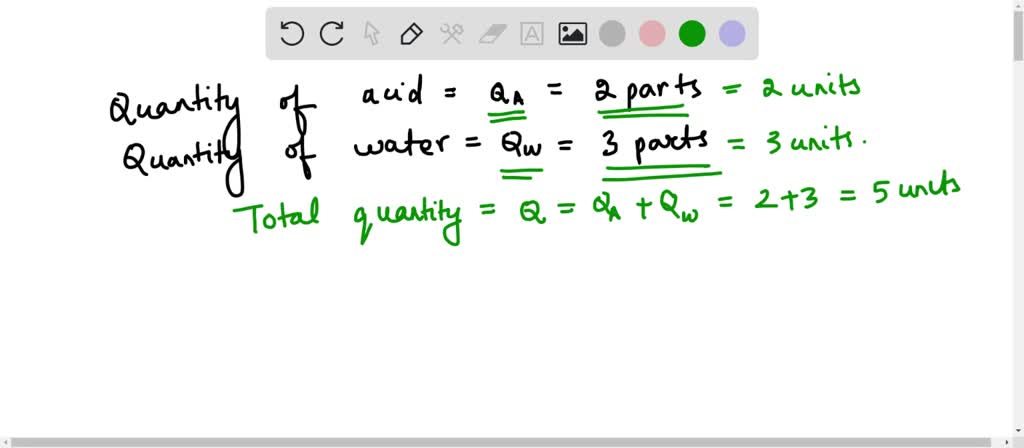 Quantity of acid = Q_A = 2 parts = 2 units
Quantity of water = Q_W = 3 parts = 3 units.
Total quantity = Q = Q_A + Q_W = 2+3 = 5 units